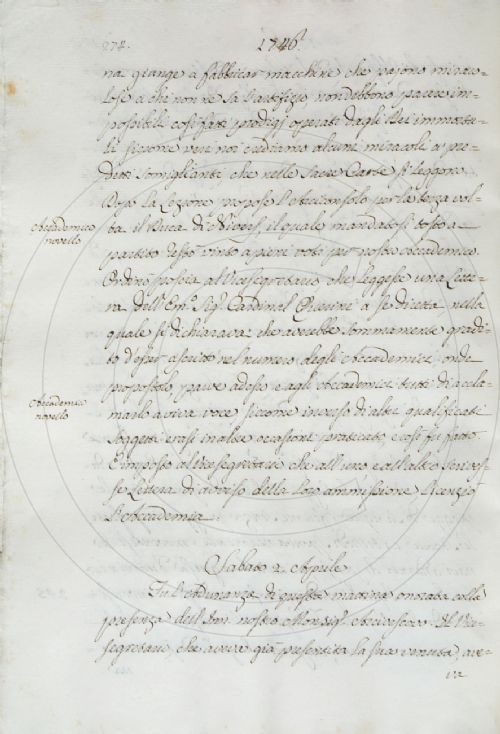 274.
1746.
na giange a fabbricar macchine che pajono miraco=
lose a chi non ne sà l'artifizio, non debbono parere im=
possibili così fatti prodigi operati dagli Dei immorta=
li siccome veri noi crediamo alcuni miracoli a pre=
detti somiglianti, che nelle Sacre Carte si leggono.
Dopo la Lezione propose l'Arciconsolo per la terza vol=
Accademico
novello
ta il Duca di Nivers, il quale mandatosi tosto a
partito restò vinto a pieni voti per nostro Accademico.
Ordinò poscia al Vicesegretario che leggesse una Lette=
ra dell'Em. Sig. Cardinal Querini a se diretta, nella
quale si dichiarava che averebbe sommamente gradi=
to d'esser ascritto nel numero degli Accademici: onde
propostolo, parve ad esso e agli Accademici tutti di accla=
Accademico
novello
marlo a viva voce siccome inverso di altri qualificati
Soggetti erasi in altre occasioni praticato, e così fu fatto.
E imposto al Vicesegretario che all'uno e all'altro scrives=
se Lettera di avviso della loro ammissione licenziò
l'Accademia.
Sabato 2. Aprile
In l'Adunanza di questa mattina onorata colla
presenza dell' nostro Monsig. Arcivescovo. Il Vice=
segretario, che aveva già presentita la sua venuta, ave=
va